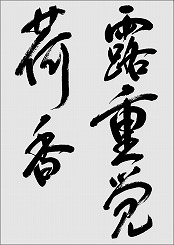 露重觉
荷香